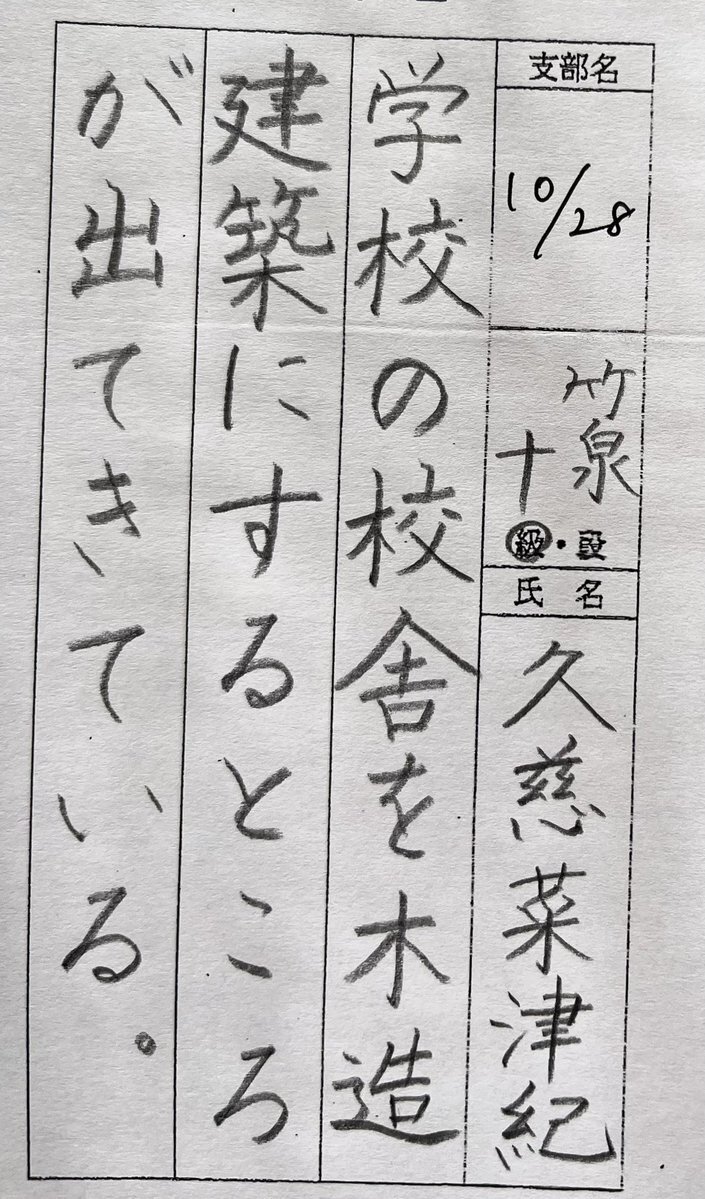 支部名
10/28
竹泉
十
級・段
氏名
久慈菜津紀
学校の校舎を木造
建築にするところ
が出てきている。